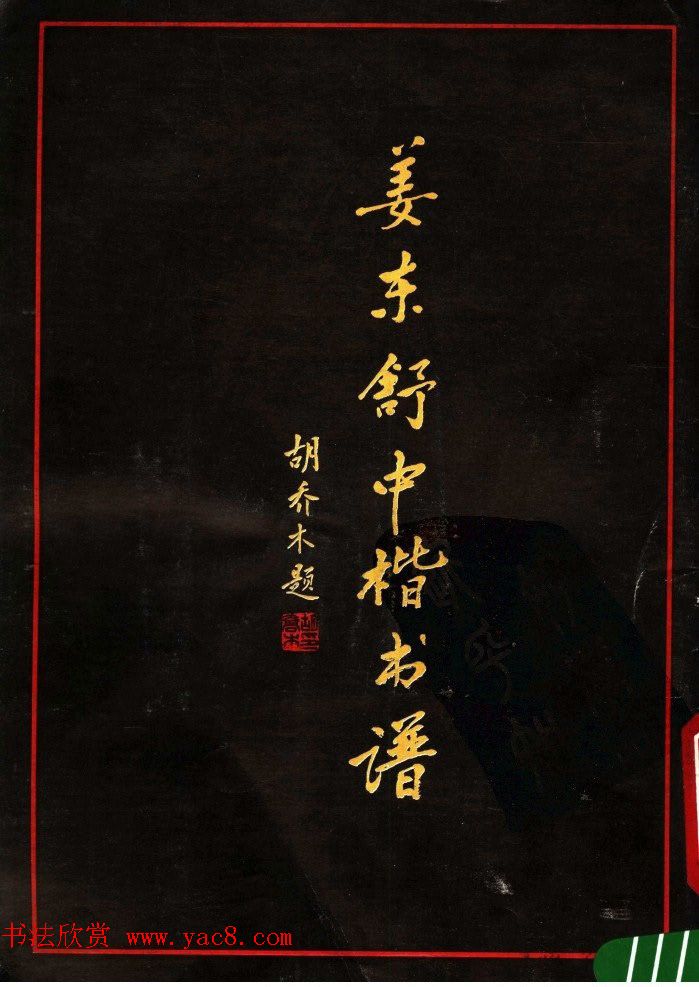 姜东舒中楷书谱
胡乔木题
书法欣赏 www.yac8.com